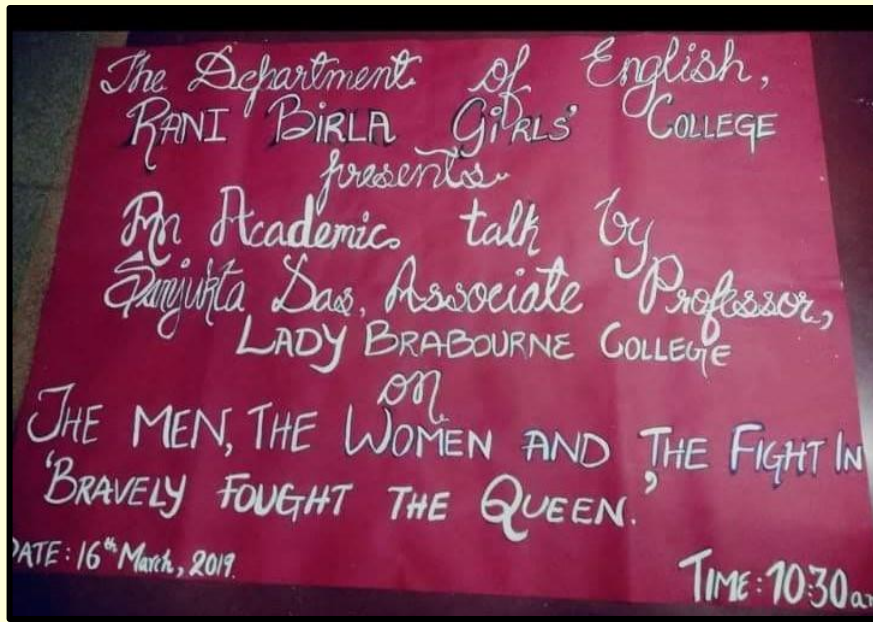 The Department of English,
RANI BIRLA GIRLS' COLLEGE
presents
An Academic talk by
Sanjukta Das, Associate Professor,
LADY BRABOURNE COLLEGE
on
THE MEN, THE WOMEN AND THE FIGHT IN
'BRAVELY FOUGHT THE QUEEN.'
DATE: 16th March, 2019.
TIME: 10:30 am